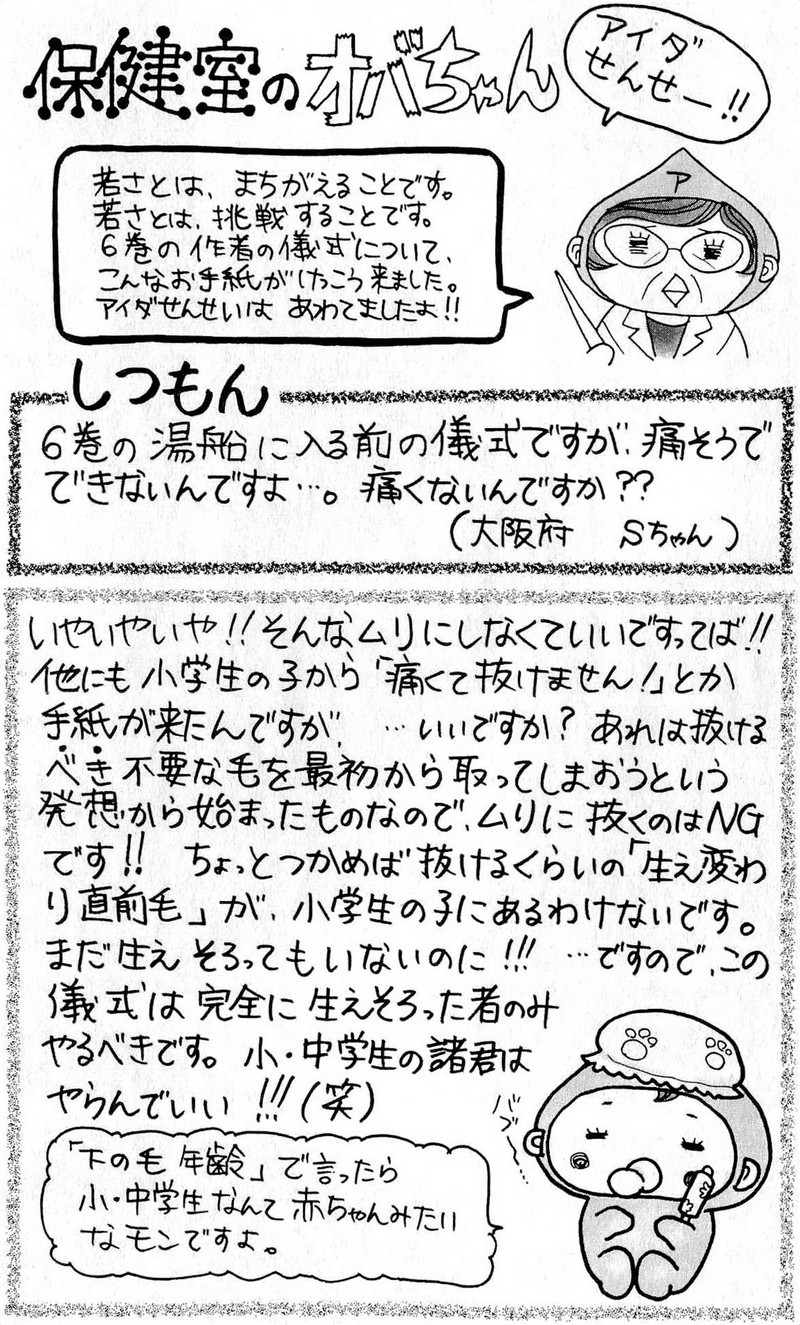 保健室のオバちゃん
アイダ
せんせー!!
ア
若さとは、まちがえることです。
若さとは、挑戦することです。
6巻の作者の儀式について、
こんなお手紙がけっこう来ました。
アイダせんせいは あわてましたよ!!
しつもん
6巻の湯船に入る前の儀式ですが、痛そうで
できないんですよ…。痛くないんですか??
(大阪府 Sちゃん)
いやいやいや!!そんなムリにしなくていいですってば!!
他にも小学生の子から「痛くて抜けません!」とか
手紙が来たんですが、…いいですか?あれは抜ける
べき不要な毛を最初から取ってしまおうという
発想から始まったものなので、ムリに抜くのはNG
です!! ちょっとつかめば抜けるくらいの「生え変わ
り直前毛」が、小学生の子にあるわけないです。
まだ生えそろってもいないのに!!! …ですので、この
儀式は完全に生えそろった者のみ
やるべきです。小・中学生の諸君は
やらんでいい!!!(笑)
バブー
「下の毛年齢」で言ったら
小・中学生なんて赤ちゃんみたい
なモンですよ。